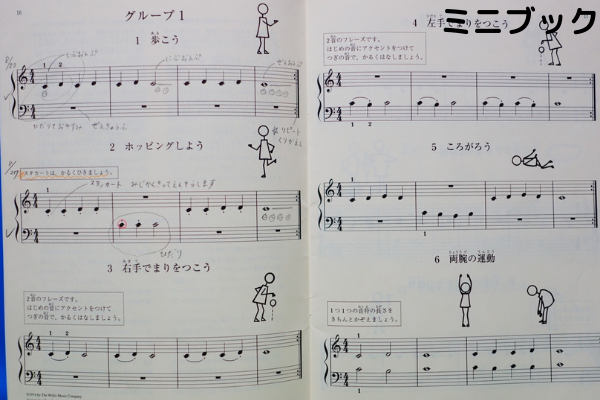 ミニブック
10
グループ1
1 歩こう
しぶおんぷ
にぶおんぷ
ぜんおんぷ
ぜんきゅうふ
くりかえし
2 ホッピングしよう
スタカートは、かるくひきましょう。
ひだり
3 右手でまりをつこう
2音のフレーズです。
はじめの音にアクセントをつけて
つぎの音で、かるくはなしましょう。
©1994 by The Willis Music Company
4 左手でまりをつこう
2音のフレーズです。
はじめの音にアクセントをつけて
つぎの音で、かるくはなしましょう。
5 ころがろう
6 両腕の運動
1つ1つの音符の長さを
きちんとかぞえましょう。